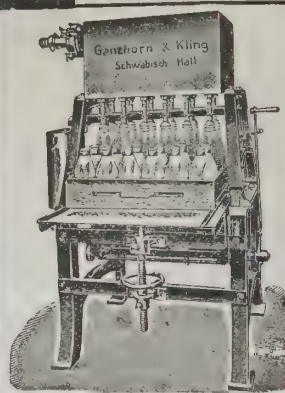 Ganzhorn & Kling
Schwäbisch Hall